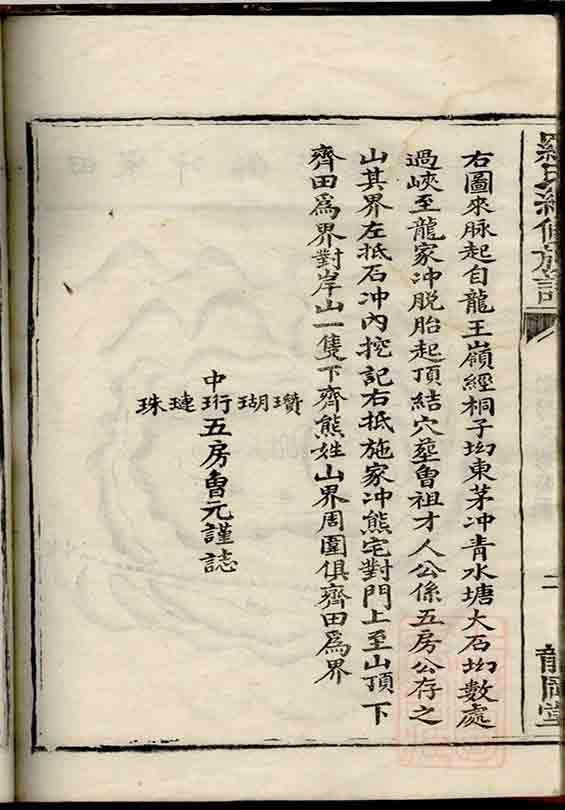 右圖來脉起自龍王嶺經桐子坳東茅冲青水塘大石坳數處
過峽至龍家冲脱胎起頂結穴塟魯祖才人公係五房公存之
山其界左抵石冲內挖記右抵施家冲熊宅對門上至山頂下
齊田爲界對岸山一隻下齊熊姓山界周圍俱齊田爲界
瓚瑚珩璉珠
中
五房魯元謹誌
二
龍岡堂